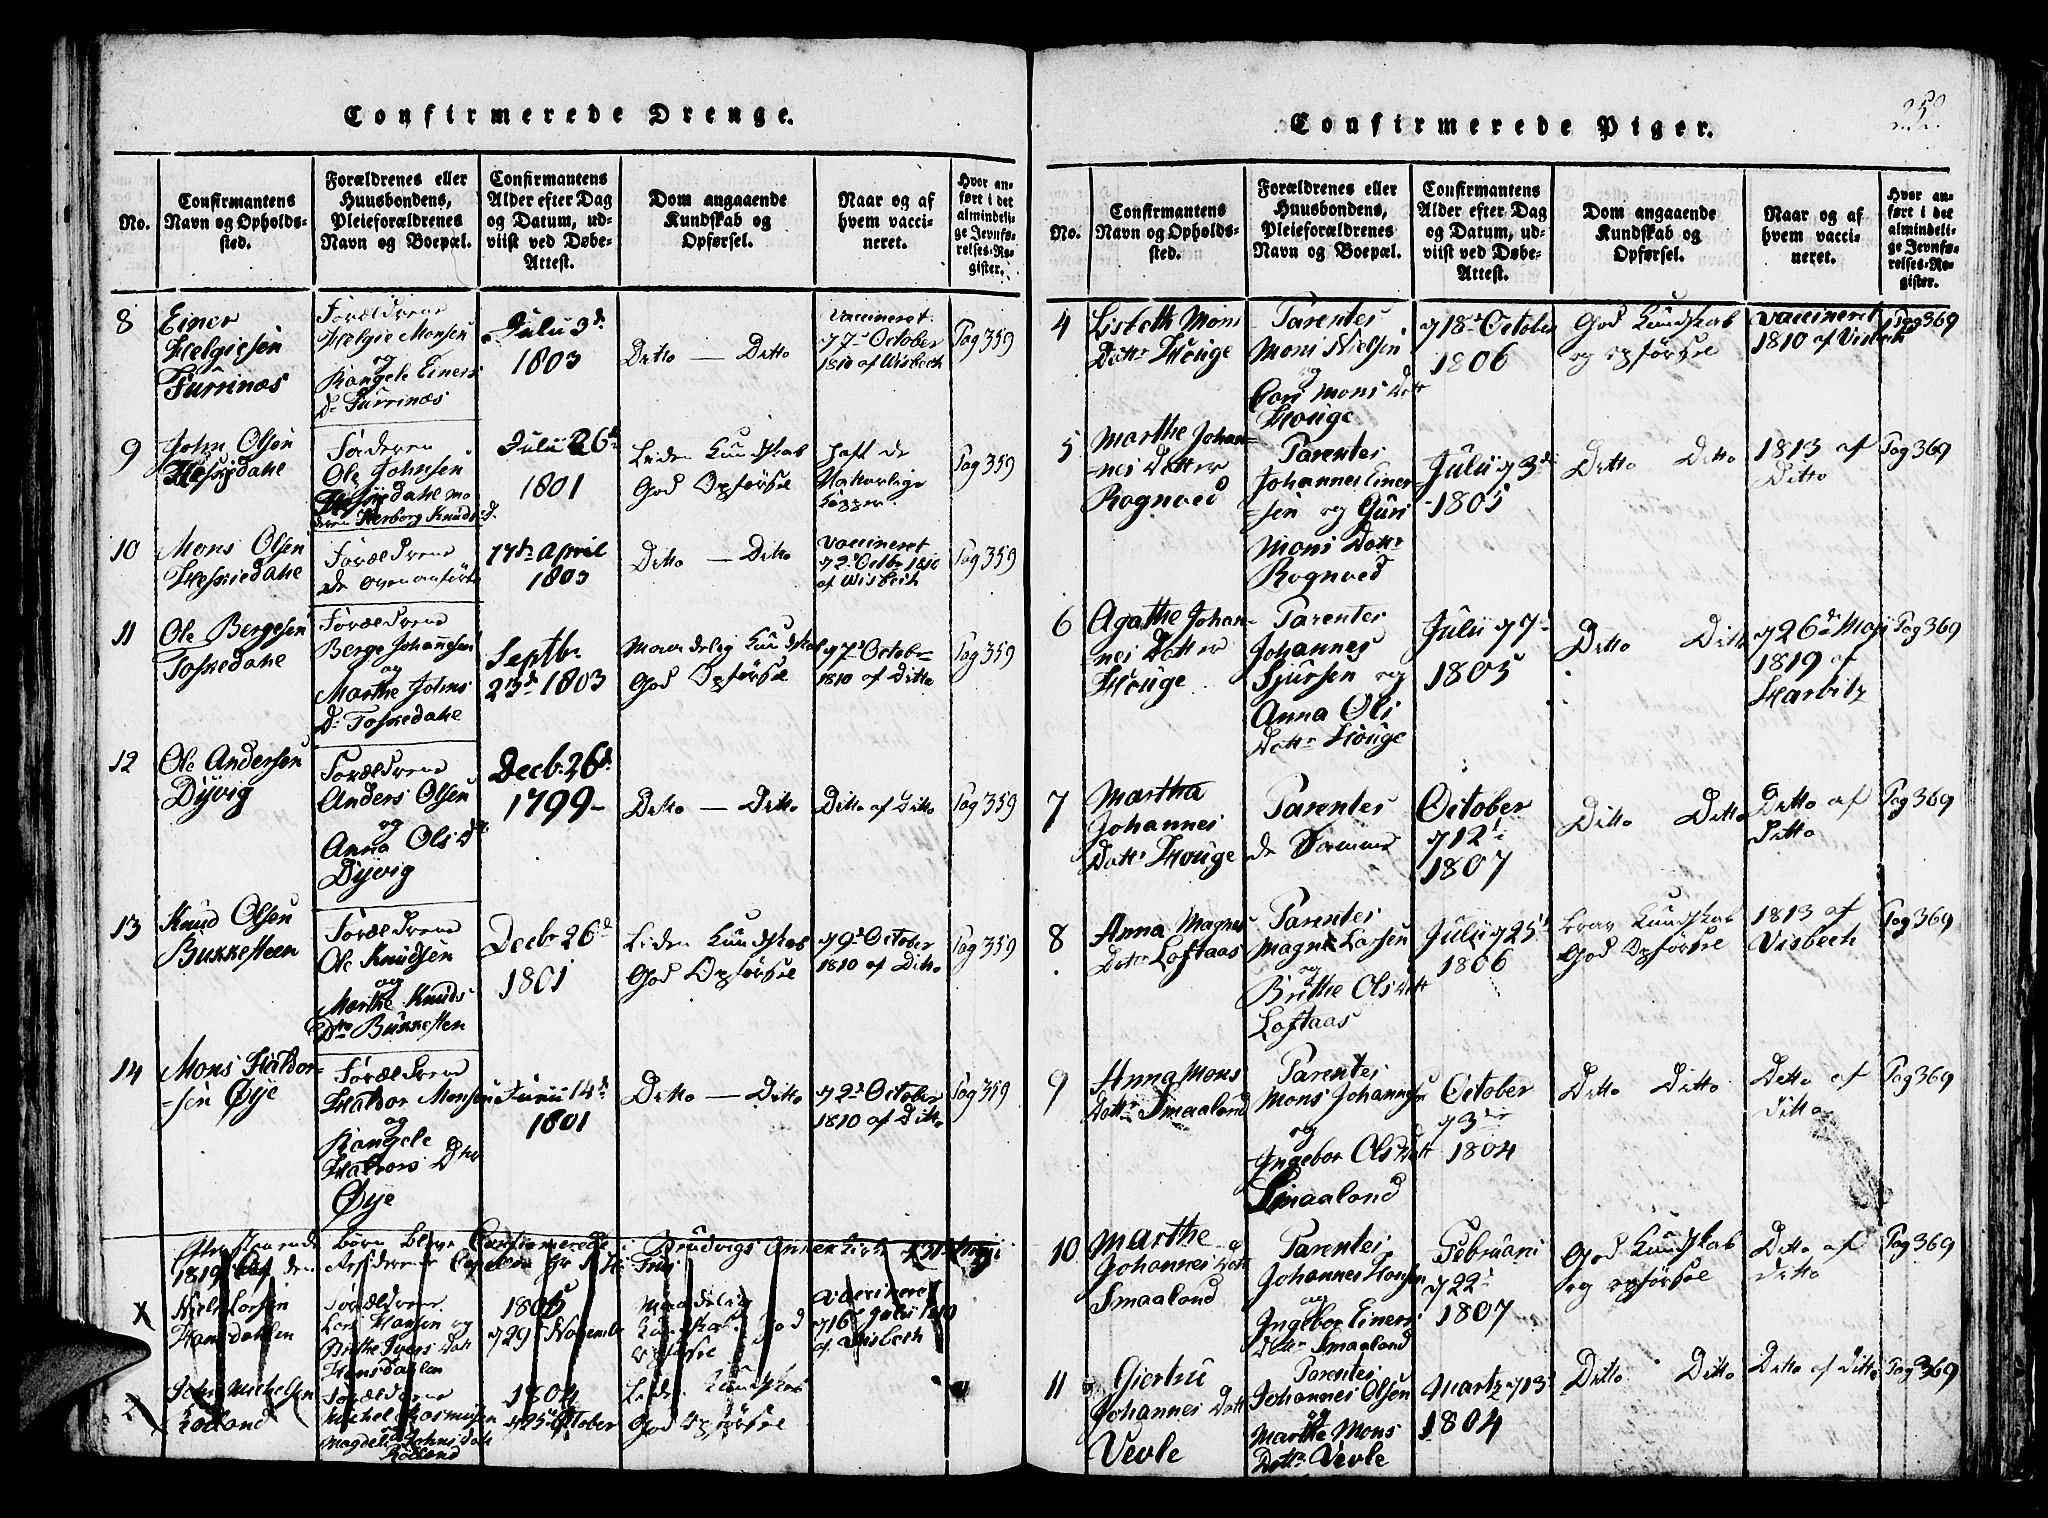 Confirmerede Drenge.
No.
Confirmantens
Navn og Opholds-
sted.
Forældrenes eller
Huusbondens,
Pleieforældrenes
Navn og Boepæl.
Confirmantens
Alder efter Dag
og Datum, ud-
viist ved Døbe-
Attest.
Dom angaaende
Kundskab og
Opførsel.
Naar og af
hvem vacci-
neret.
Hvor an-
ført i det
almindeli-
ge Jevnfø-
relses-Re-
gister.
8
Einer
Helgiesen
Furrinæs
Forældrene
Helgie Monsen
og
Rangele Einers
D. Furrinæs
Julii 3d
1803
Ditto — Ditto
Vaccineret
d 7d October
1810 af Wisbech
Pag 359
9
John Olsen
Hesjedahl
Ole Johnsen
Julii 26d
1801
Liden Kundskab
God Opførsel
haft de
Naturlige
Kopper.
Pag 359
10
Mons Olsen
Hesjedahl
Forældrene
de ovenanførte
17de April
1803
Ditto — Ditto
Vaccineret
d 2d Octbr 1810
af Wisbech
Pag 359
11
Ole Bergesen
Toskedahl
Forældrene
Berge Johannesen
og
Marthe Johns
D. Toskedahl
Septbr
23d 1803
Maadelig Kundskab
God Opførsel
d 7d Octob=
1810 af Ditto
Pag 359
12
Ole Andersen
Dyvig
Forældrene
Anders Olsen
og
Anna Ols Dtr
Dyvig
Decb. 26d
1799-
Ditto — Ditto
Ditto af Ditto
Pag 359
13
Knud Olsen
Bukkesteen
Forældrene
Ole Knudsen
og
Marthe Knuds
Dtr Bukkesten
Decbr 26d
1801
Liden Kundskab
God Opførsel
d 9d October
1810 af Ditto
Pag 359
14
Mons Haldor-
-sen Øye
Forældrene
Haldor Monsen
og
Rangele
Haldors Dtr
Øye
Junii 14d
1801
Ditto — Ditto
d 2d October
1810 af Ditto
Pag 359
Børn bleve Confirmerede i Brudvigs Annex Kirke
1819 af den
Niels Larsen
Hansdahlen
Forældrene
Lars Hansen og
Brithe Ivers Datt
Hansdahlen
1805
d 29d Novembr
Maadelig
Kundskab God
Opførsel
Vaccineret
d 16d Julii 1810
af Wisbech
John Michelsen
Rødland
Forældrene
Michel Rasmusen
og
Magdeli Johns Datt
Rødland
1804
d 25d October
Liden Kundskab
God Opførsel
Confirmerede Piger.
252.
No.
Confirmantens
Navn og Opholds-
sted.
Forældrenes eller
Huusbondens,
Pleieforældrenes
Navn og Boepæl.
Confirmantens
Alder efter Dag
og Datum, ud-
viist ved Døbe-
Attest.
Dom angaaende
Kundskab og
Opførsel.
Naar og af
hvem vacci-
neret.
Hvor an-
ført i det
almindeli-
ge Jevnfø-
relses-Re-
gister.
4
Lisbeth Mons
Dattr Houge
Parentes
Mons Nielsen
og
Cari Mons Datt
Houge
d 18d October
1806
God Kundskab
og opførsel
Vaccineret
1810 af Visbech
Pag 369
5
Marthe Johan-
-nes Datter
Rognved
Parentes
Johannes Einer
-sen og Guri
Mons Dattr
Rognved
Julii d 3d
-1805
Ditto Ditto
1813 af
Ditto
Pag 369
6
Agathe Johan-
-nes Datter
Houge
Parentes
Johannes
Sjursen og
Anna Ols
Dattr Houge
Julii d 7d
1805
Ditto Ditto
d 26d Maj
1819 af
Harbitz
Pag 369
7
Martha
Johannes
Dattr Houge
Parentes
de Samme
October
d 12d
1807
Ditto Ditto
Ditto af
Ditto
Pag 369
8
Anna Magnes
Dattr Loftaas
Parentes
Magne Larsen
og
Brithe Ols Datt
Loftaas
Julii d 25d
1806
brav Kundskab
God Opførsel
1813 af
Visbech
Pag 369
9
Anna Mons
Dattr Smaaland
Parentes
Mons Johannesen
og
Ingebor Ols Datt
Smaaland
October
d 3d
1804
Ditto Ditto
Ditto af
Ditto
Pag 369
10
Marthe
Johannes Datt
Smaaland
Parentes
Johannes Hansen
og
Ingebor Einers
Dattr Smaaland
Februari
d 22d
1807
God Kundskab
og opførsel
Ditto af
Ditto
Pag 369
11
Giertru
Johannes Datt
Vevle
Parentes
Johannes Olsen
og
Marthe Mons
Dattr Vevle
Martz d 13d
1804
Ditto Ditto
Ditto af Ditto
Pag 369